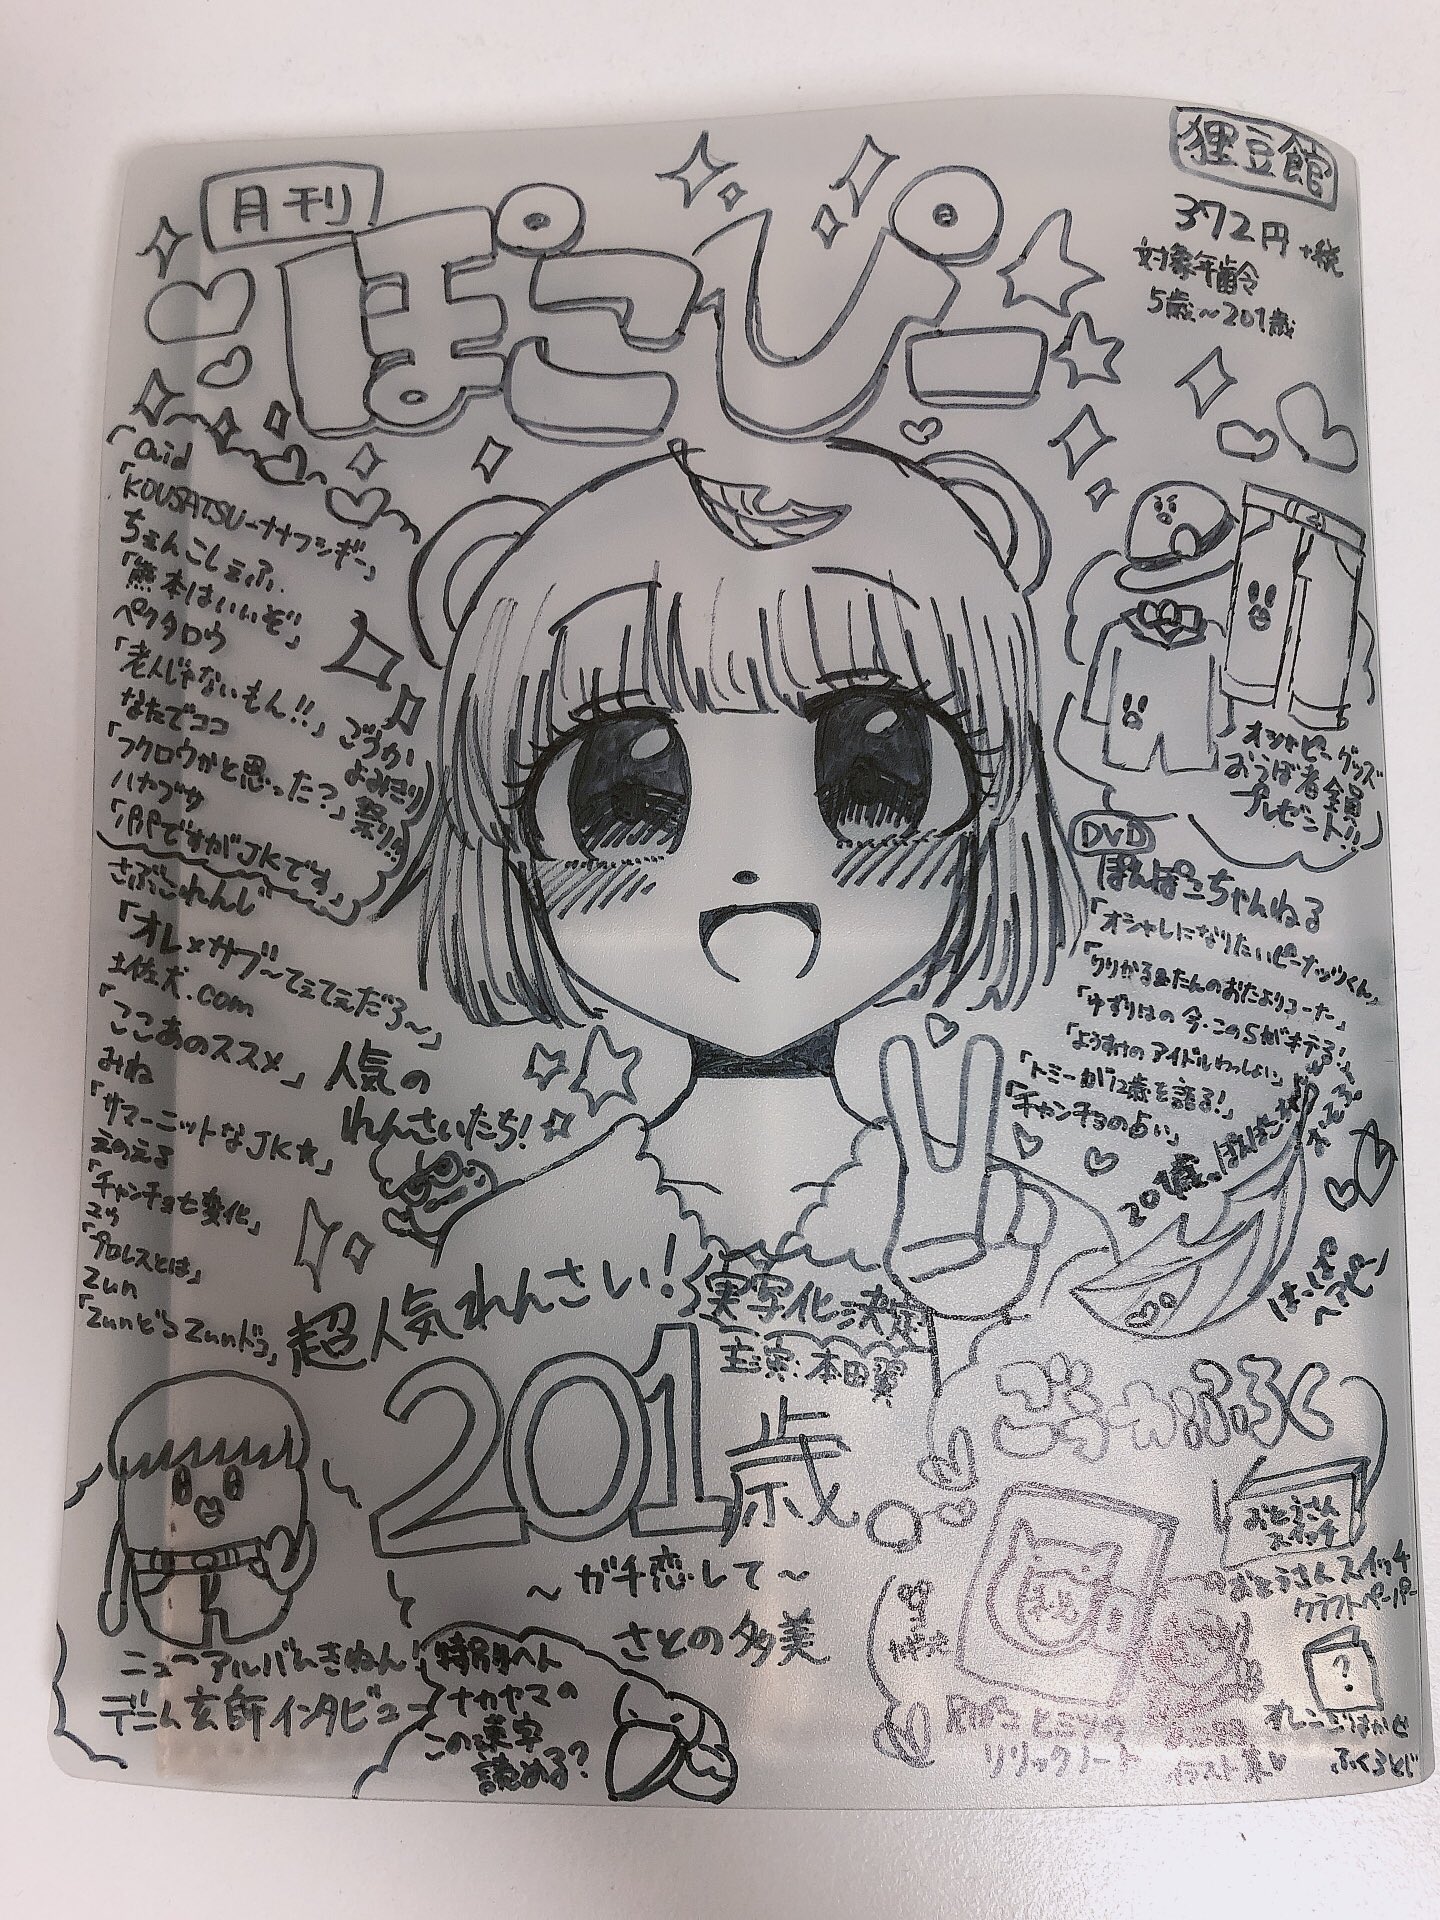 狸豆館
372円+税
対象年齢
5歳〜201歳
月刊
ぽこぴー
「avid」
「KOUSATSUーナナフシギー」
ちぇんこしぇふ
「熊本はいいぞ」
ペクタロウ
「老人じゃないもん!!」
なたでココ
「フクロウかと思った?」
ハヤブサ
「ですがJKです」
ごうか
よみきり
祭り!!
さぶこれんじ
「オレ×サブ〜てぇてぇだろ〜」
土佐犬.com
「ここあのススメ」
みね
「サマーニットなJK☆」
えのえる
「チャンチョ七変化」
「プロレスとは」
Zun
「ZunどらZunドコ」
人気の
れんさいたち!
オシャピーグッズ
おうぼ者全員
プレゼント!!
DVD
ぽんぽこちゃんねる
「オシャレになりたいピーナッツくん」
「クリかる&たんのおたよりコーナー」
「ゆずりはの今・この5がキテる!」
「ようすけのアイドルわっしょい」
「トミーが12歳を語る!」
「チャンチョの占い」
超人気れんさい!
実写化決定
主演:本田翼
201歳
〜ガチ恋して〜
さとの多美
ごうかふろく
おとうさん
スイッチ
おとうさんスイッチ
クラフトペーパー
?
ふくろとじ
リリックノート
イラスト集
ニューアルバムきねん!
デニム玄師インタビュー
特別へん
ナカヤマの
この漢字
読める?